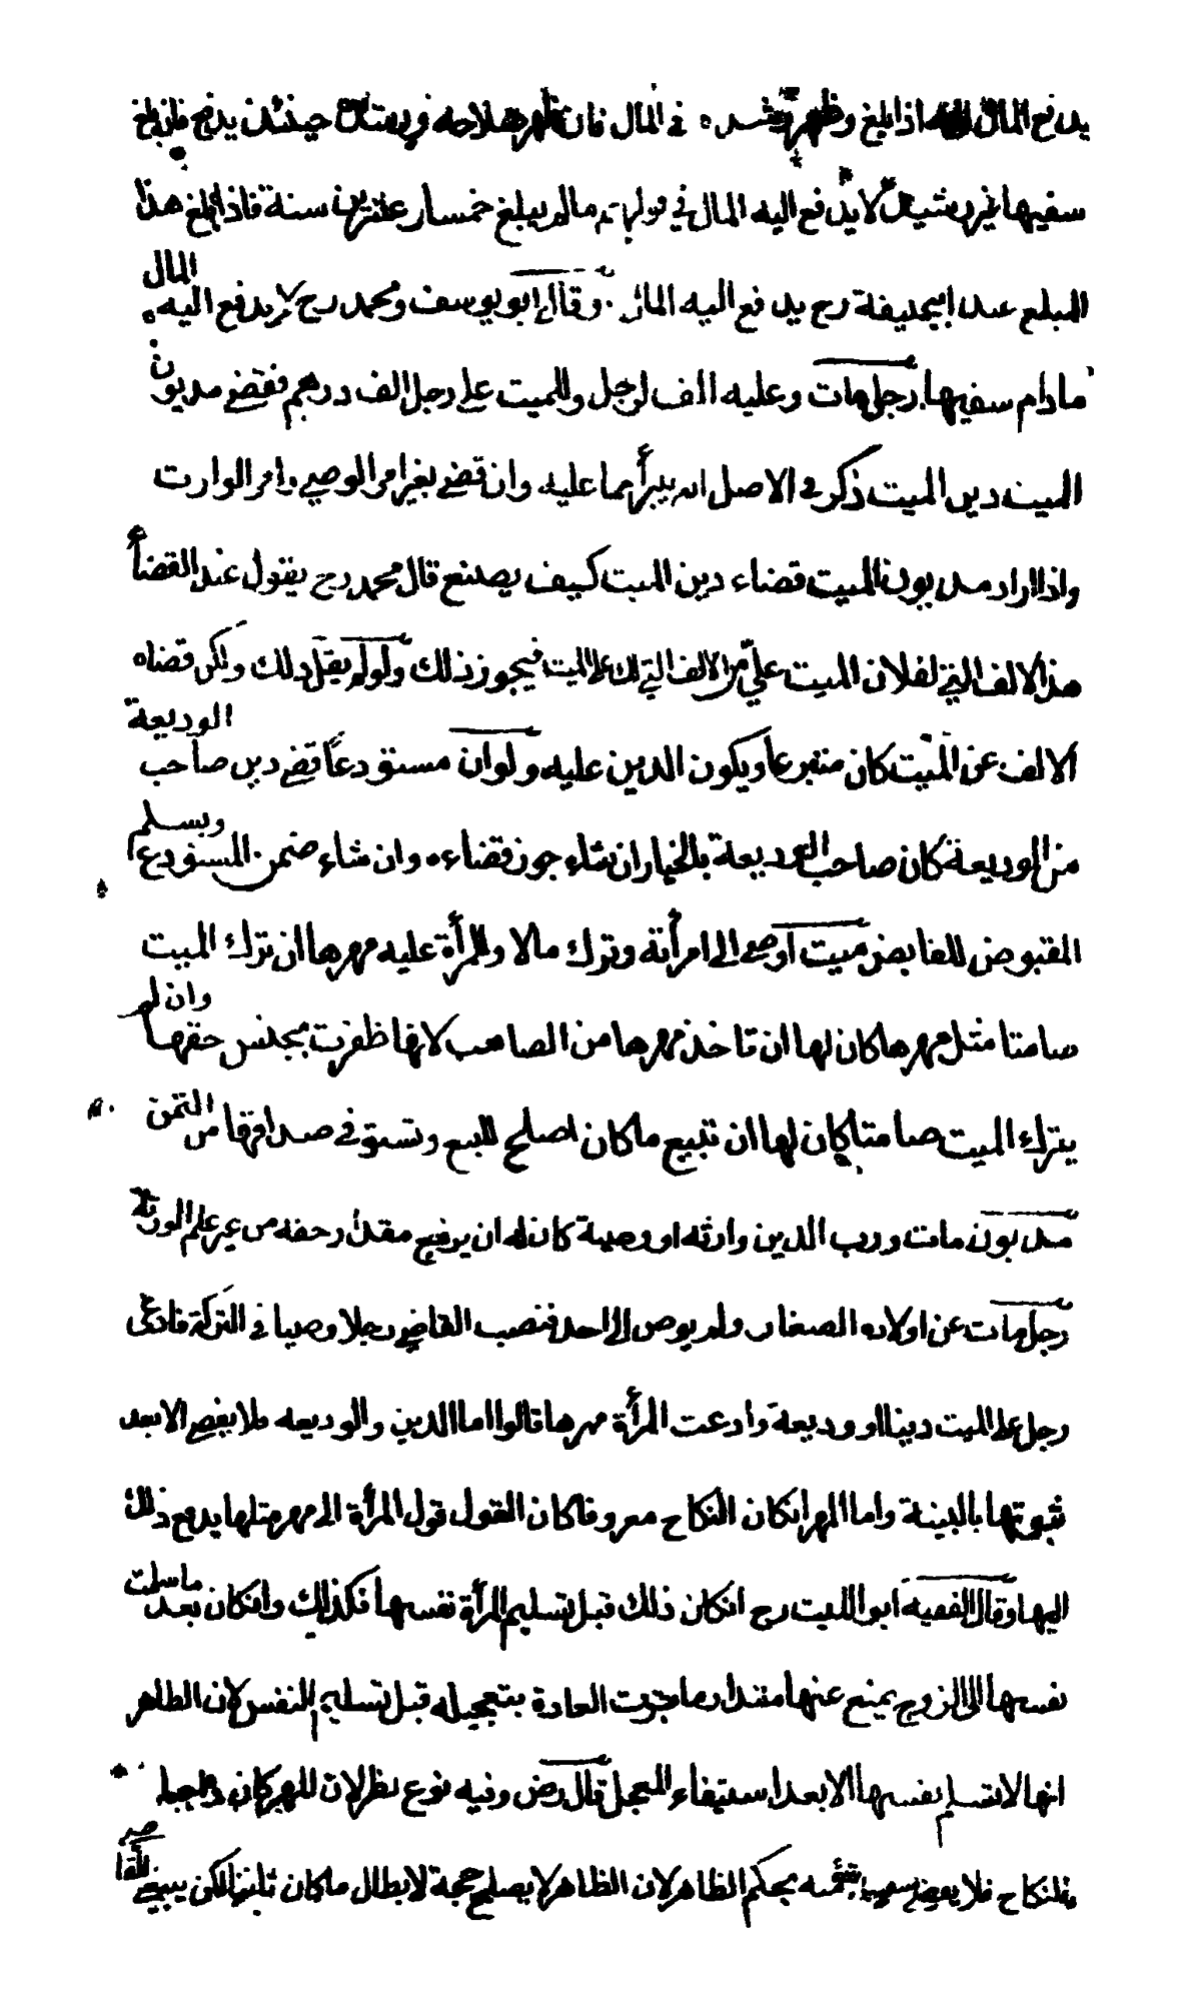 يدفع المال اليه اذا بلغ وظهر رشده في المال فان ظهر صلاحه ورشده حينئذ يدفع فان بلغ
سفيها غير رشيد لا يدفع اليه المال في قولهم مالم يبلغ خمسا وعشرين سنة فاذا بلغ هذا
المبلغ عند ابيحنيفة رح يدفع اليه المال وقال ابو يوسف ومحمد رح لا يدفع اليه المال
مادام سفيها رجل مات وعليه الف لرجل وللميت على رجل الف درهم فقضى مديون
الميت دين الميت ذكر في الاصل انه يبرأ مما عليه وان قضى بغير امر الوصي وامر الوارث
واذا اراد مديون الميت قضاء دين الميت كيف يصنع قال محمد رح يقول عند القضأ
هذا الالف التي لفلان الميت علي من الالف التي لك على الميت فيجوز ذلك ولو لم يقل ذلك ولكن قضاه
الالف عن الميت كان متبرعا ويكون الدين عليه ولو ان مستودعا قضى دين صاحب الوديعة
من الوديعة كان صاحب الوديعة بالخيار ان شاء جوز قضاءه وان شاء ضمن المستودع ويسلم
المقبوض للقابض ميت اوصى الى امرأته وترك مالا وللمرأة عليه مهرها ان ترك الميت
صامتا مثل مهرها كان لها ان تاخذ مهرها من الصامت لانها ظفرت بجنس حقها وان لم
يترك الميت صامتا كان لها ان تبيع ماكان اصلح للبيع وتستوفي صداقها من الثمن
مديون مات ورب الدين وارثه او وصيه كان له ان يرفع مقدار حقه من غير علم الورثة
رجل مات عن اولاده الصغار ولم يوص الى احد فنصب القاضي رجلا وصيا في التركة فادعى
رجل على الميت دينا او وديعة وادعت المرأة مهرها قالوا اما الدين والوديعه فلا يقضي الا بعد
ثبوتها بالبينة واما المهر انكان النكاح معروفا كان القول قول المرأة الى مهر مثلها يدفع ذلك
اليها وقال الفقيه ابو الليث رح انكان ذلك قبل تسليم المرأة نفسها فكذلك وانكان بعد ماسلمت
نفسها الى الزوج يمنع عنها مقدار ما جرت العادة بتعجيله قبل تسليم النفس لان الظاهر
انها لا تسلم نفسها الا بعد استيفاء المعجل قال رض وفيه نوع نظر لان المهر كان واجبا
بالنكاح فلا يقضي بسقوط شئ منه بحكم الظاهر لان الظاهر لا يصلح حجة لابطال ماكان ثابتا لكن ينبغي للقا صي